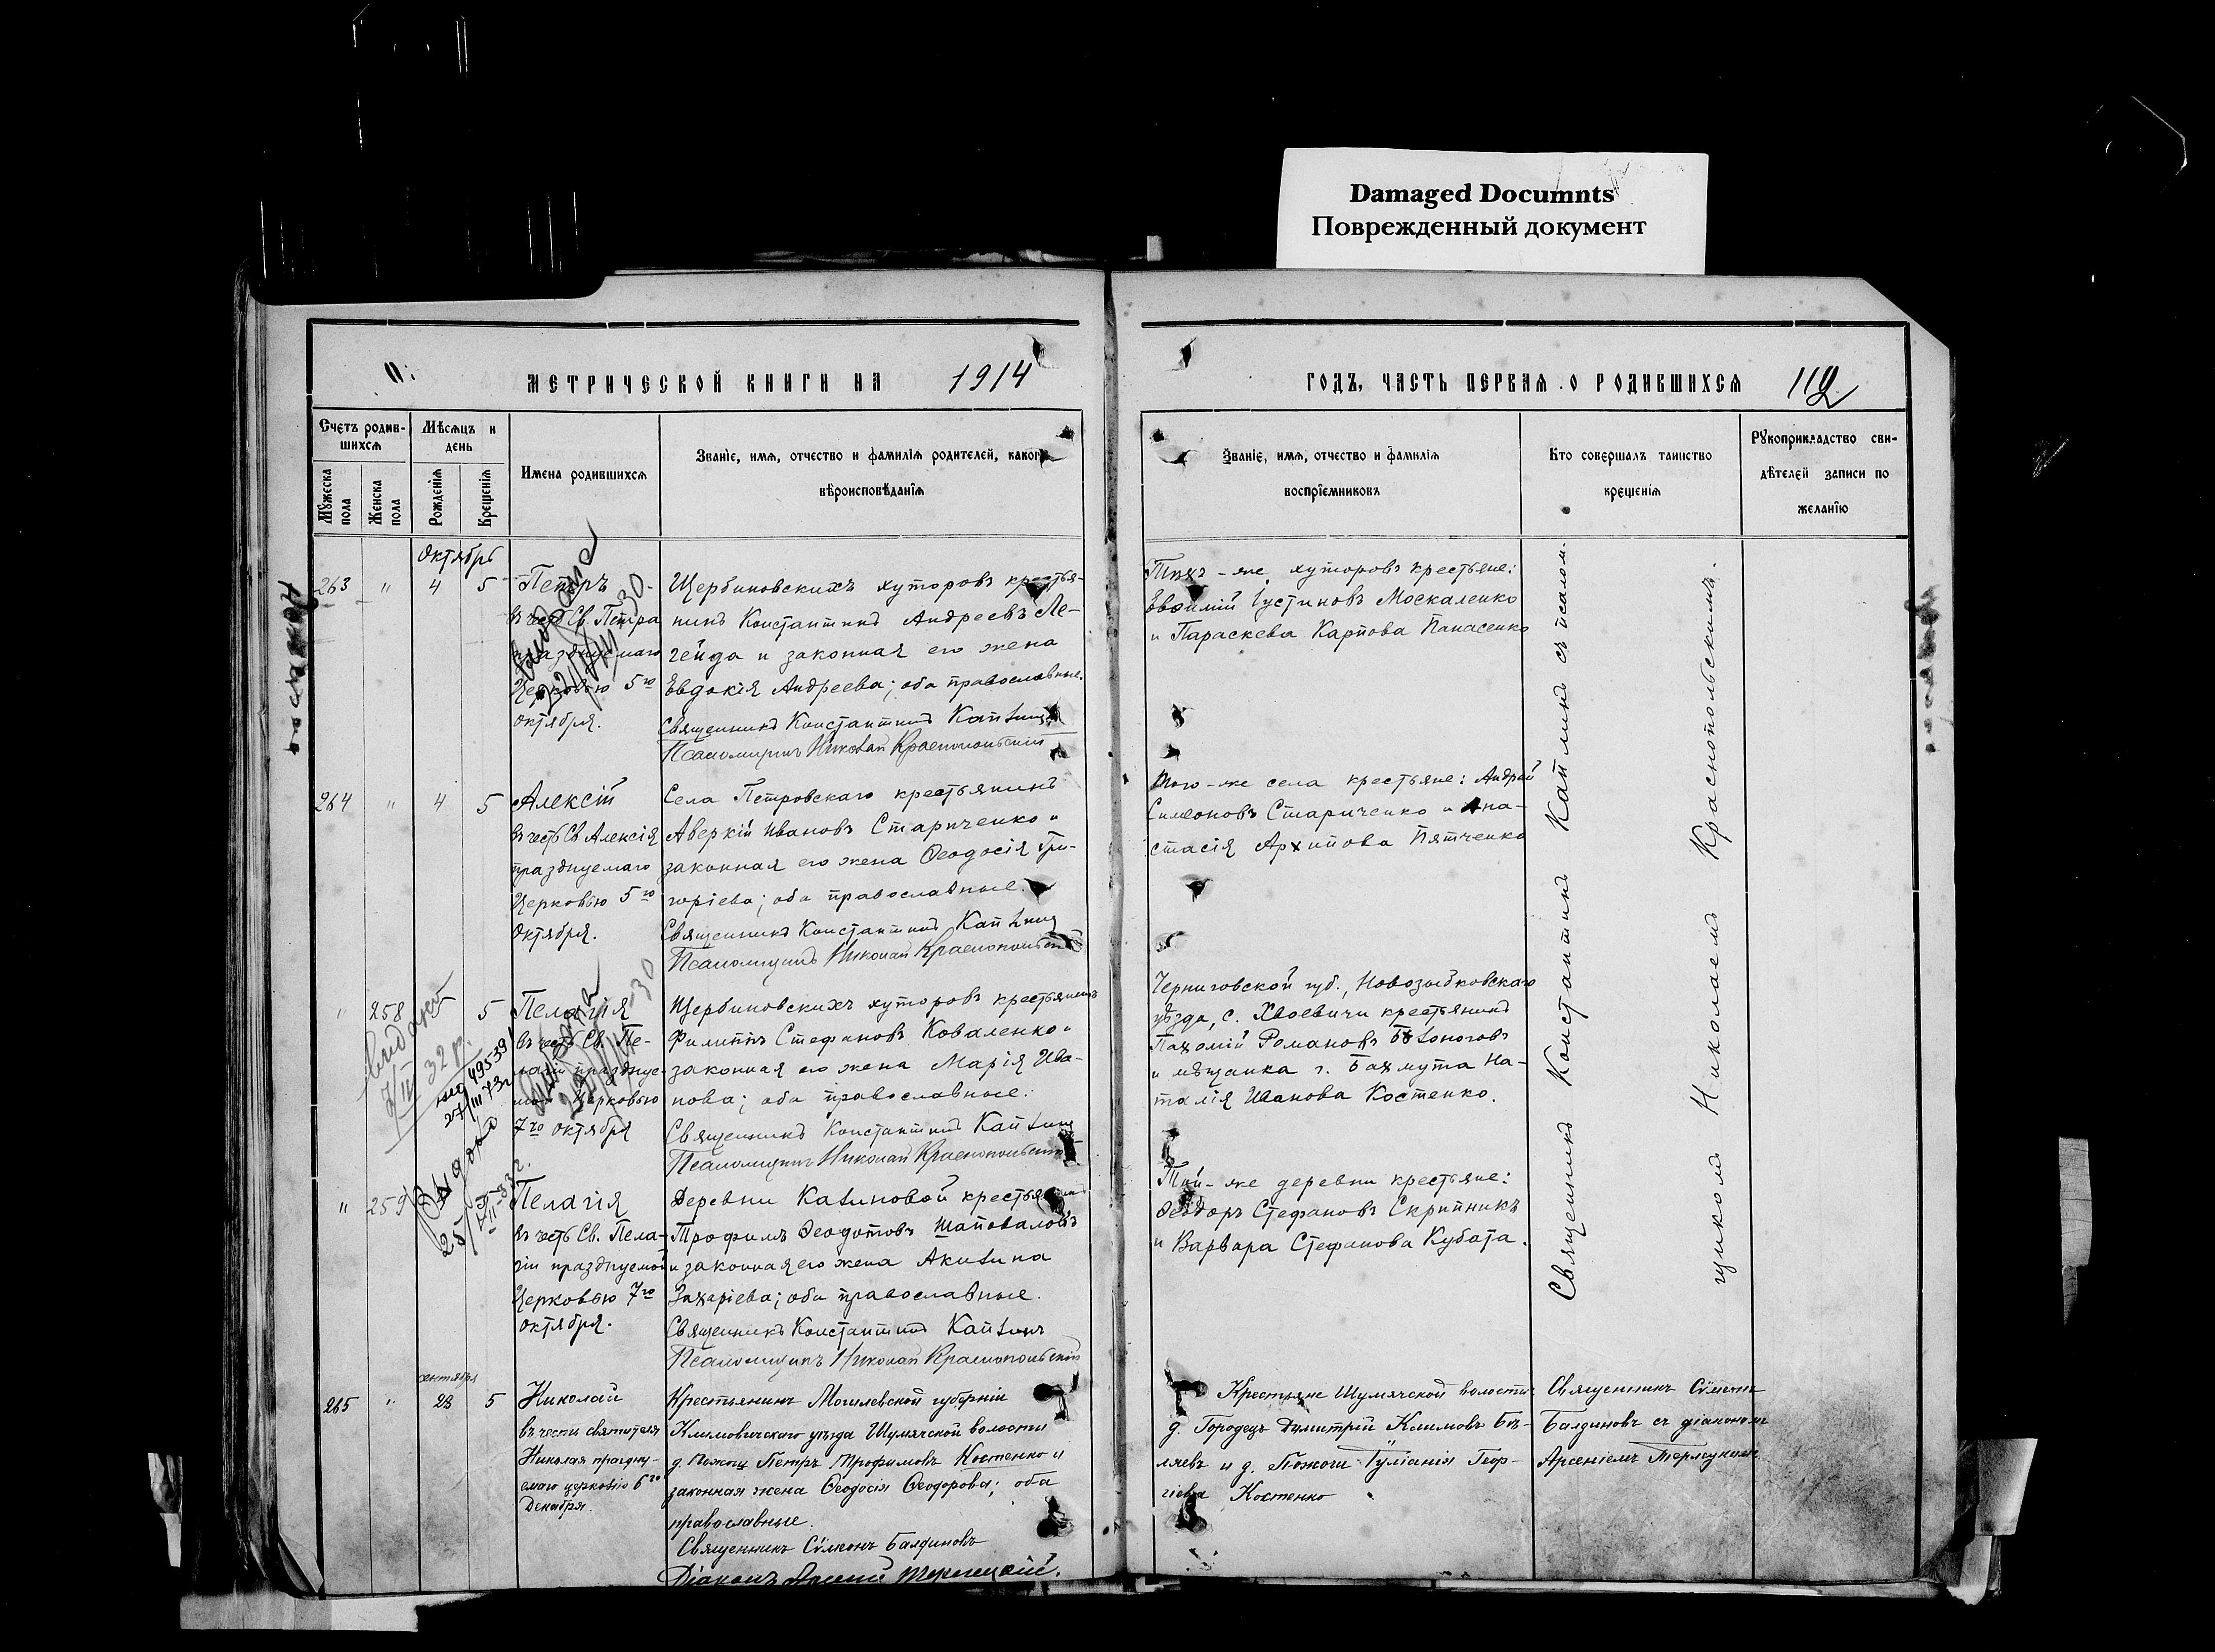 Damaged Documnts
Поврежденный документ
МЕТРИЧЕСКОЙ КНИГИ НА 1914
ГОДЪ, ЧАСТЬ ПЕРВАЯ О РОДИВШИХСЯ 112
Счетъ родив-
шихся
Мѣсяцъ и
день
Мужеска
пола
Женска
пола
Рожденія
Крещенія
Имена родившихся
Званіе, имя, отчество и фамилія родителей, какого
вѣроисповѣданія
Званіе, имя, отчество и фамилія
воспріемниковъ
Кто совершалъ таинство
крещенія
Рукоприкладство сви-
дѣтелей записи по
желанію
Октябрь
263 " 4 5
Петръ
въ честь Св. Петра
празднуемаго
Церковью 5го
Октября.
Щербиновскихъ хуторовъ крестья-
нинъ Константинъ Андреевъ Ле-
гейда и законная его жена
Евдокія Андреева; оба православные.
Священникъ Константинъ Каплинъ
Псаломщикъ Николай Краснопольскій
Тѣхъ-же хуторовъ крестьяне:
Евфимій Іустиновъ Москаленко
и Параскева Карпова Панасенко
264 " 4 5
Алексій
въ честь Св Алексія
празднуемаго
Церковію 5го
Октября.
Села Петровскаго крестьянинъ
Аверкій Ивановъ Стариченко и
законная его жена Ѳеодосія Гри-
горіева; оба православные.
Священникъ Константинъ Каплинъ
Псаломщикъ Николай Краснопольскій
Того-же села крестьяне: Андрей
Симеоновъ Стариченко и Ана-
стасія Архипова Пятченко
" 258 5
Пелагія
въ честь Св. Пе-
лагіи празднуе-
мой Церковью
7го Октября
Щербиновскихъ хуторовъ крестьянинъ
Филиппъ Стефановъ Коваленко и
законная его жена Марія Ива-
нова; оба православные.
Священникъ Константинъ Каплинъ
Псаломщикъ Николай Краснопольскій
Черниговской губ., Новозыбковскаго
уѣзда, с. Хвоевичи крестьянинъ
Пахомій Романовъ
и мѣщанка г. Бахмута На-
талія Иванова Костенко.
" 259
Пелагія
въ честь Св. Пела-
гіи празднуемой
Церковью 7го
Октября.
Деревни Калиновой крестьянинъ
Трофимъ Ѳеодотовъ Шаповаловъ
и законная его жена Акилина
Захаріева; оба православные.
Священникъ Константинъ Каплинъ
Псаломщикъ Николай Краснопольскій
Той-же деревни крестьяне:
Ѳеодоръ Стефановъ Скрипникъ
и Варвара Стефанова Кубата.
Священникъ Константинъ Каплинъ съ псалом-
щикомъ Николаемъ Краснопольскимъ.
сентября
265 " 28 5
Николай
въ честь святителя
Николая праздну-
емаго церковію 6го
Декабря.
Крестьянинъ Могилевской губерніи
Климовичскаго уѣзда Шумячской волости
д. Пожоги Петръ Трофимовъ Костенко и
законная жена Ѳеодосія Ѳеодорова; оба
православные.
Священникъ Сѵмеонъ Балдиновъ
Діаконъ Арсеній Терлецкій.
Крестьяне Шумячской волости
д. Городецъ Димитрій Климовъ Бѣ-
ляевъ и д. Пожоги Іуліанія Геор-
гіева Костенко
Священникъ Сѵмеонъ
Балдиновъ съ діакономъ
Арсеніемъ Терлецкимъ